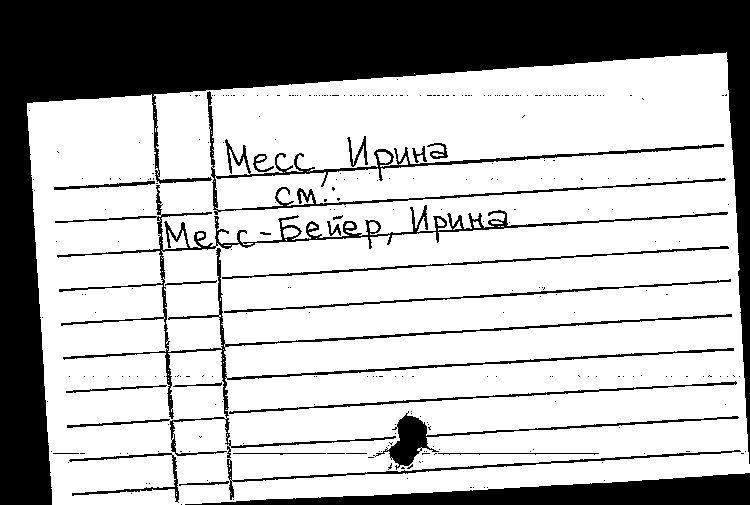 Месс, Ирина
см.:
Месс-Бейер, Ирина